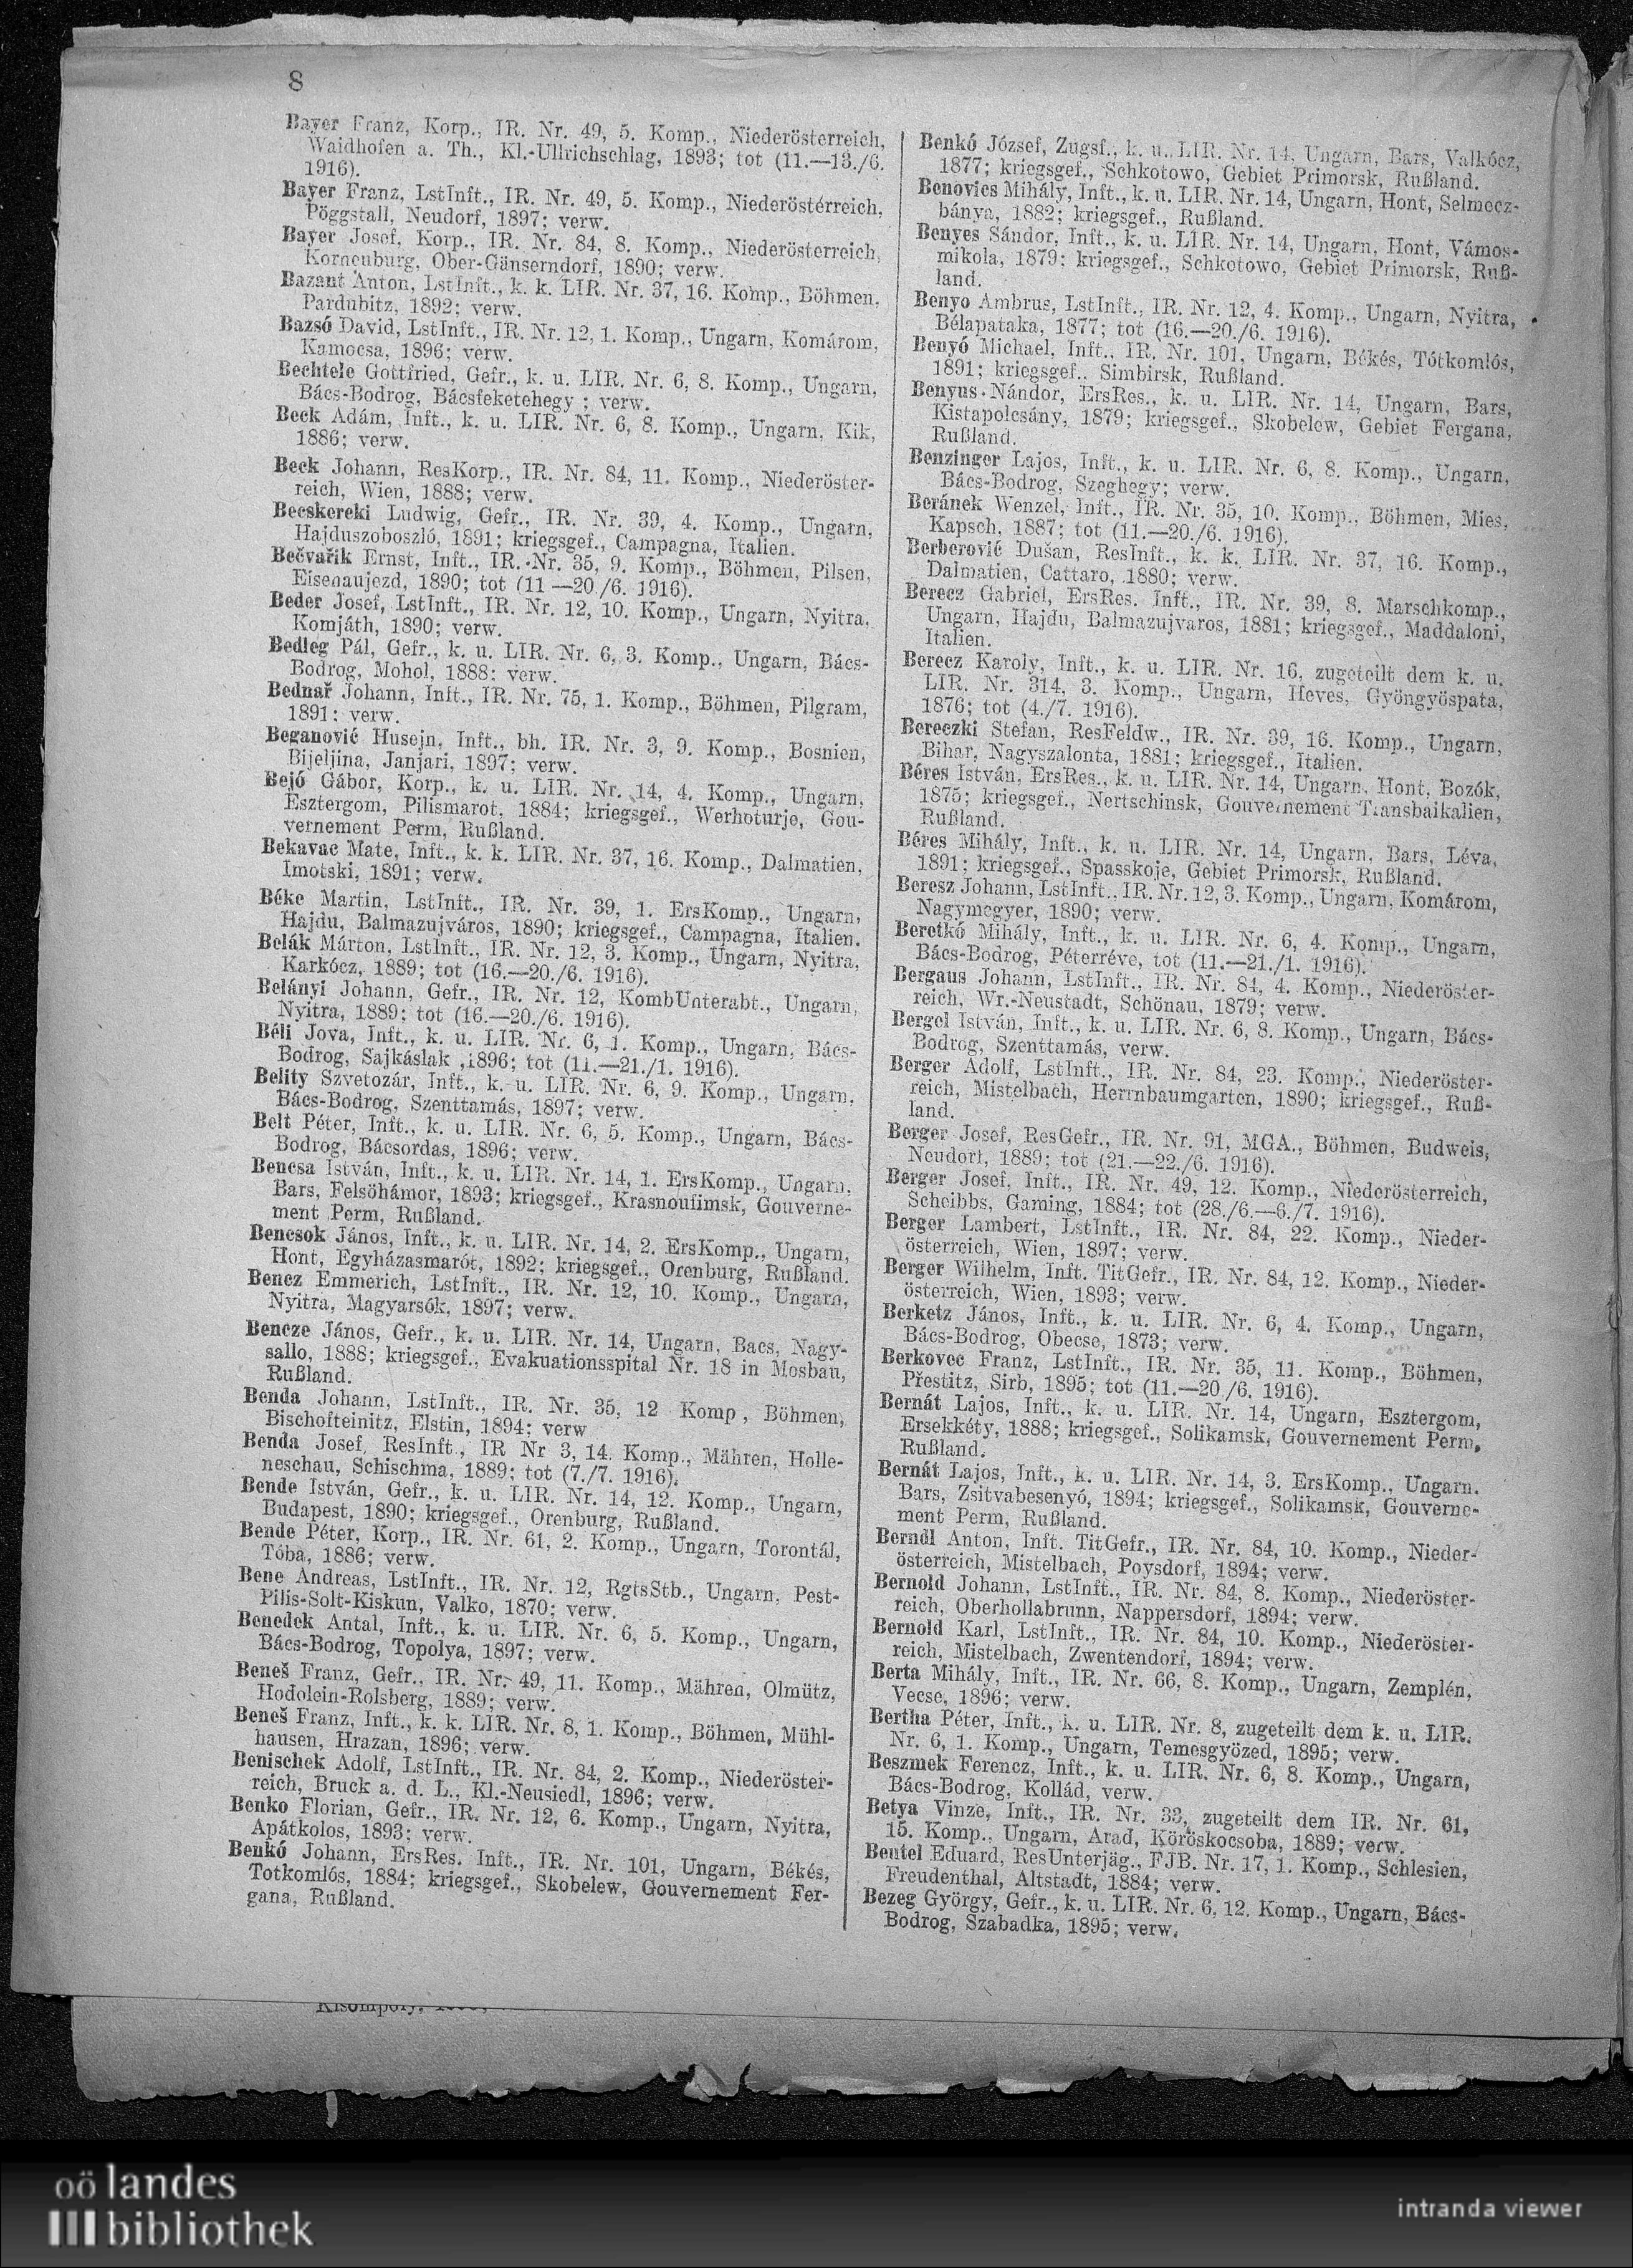 8
Bayer Franz, Korp., IR. Nr. 49, 5. Komp., Niederösterreich,
Waidhofen a. Th., Kl.-Ullrichschlag, 1893; tot (11.—13./6.
1916).
Bayer Franz, LstInft., IR. Nr. 49, 5. Komp., Niederösterreich,
Pöggstall, Neudorf, 1897; verw.
Bayer Josef, Korp., IR. Nr. 84, 8. Komp., Niederösterreich,
Korneuburg, Ober-Gänserndorf, 1890; verw.
Bazant Anton, LstInft., k. k. LIR. Nr. 37, 16. Komp., Böhmen,
Pardubitz, 1892; verw.
Bazsó David, LstInft., IR. Nr. 12, 1. Komp., Ungarn, Komárom,
Kamocsa, 1896; verw.
Bechtele Gottfried, Gefr., k. u. LIR. Nr. 6, 8. Komp., Ungarn,
Bács-Bodrog, Bácsfeketehegy ; verw.
Beck Adám, Inft., k. u. LIR. Nr. 6, 8. Komp., Ungarn, Kik,
1886; verw.
Beck Johann, ResKorp., IR. Nr. 84, 11. Komp., Niederöster-
reich, Wien, 1888; verw.
Becskereki Ludwig, Gefr., IR. Nr. 39, 4. Komp., Ungarn,
Hajduszoboszló, 1891; kriegsgef., Campagna, Italien.
Bečvařik Ernst, Inft., IR. Nr. 35, 9. Komp., Böhmen, Pilsen,
Eisenaujezd, 1890; tot (11 —20./6. 1916).
Beder Josef, LstInft., IR. Nr. 12, 10. Komp., Ungarn, Nyitra,
Komjáth, 1890; verw.
Bedleg Pál, Gefr., k. u. LIR. Nr. 6, 3. Komp., Ungarn, Bács-
Bodrog, Mohol, 1888; verw.
Bednař Johann, Inft., IR. Nr. 75, 1. Komp., Böhmen, Pilgram,
1891; verw.
Beganović Husejn, Inft., bh. IR. Nr. 3, 9. Komp., Bosnien,
Bijeljina, Janjari, 1897; verw.
Bejó Gábor, Korp., k. u. LIR. Nr. 14, 4. Komp., Ungarn,
Esztergom, Pilismarot, 1884; kriegsgef., Werhoturje, Gou-
vernement Perm, Rußland.
Bekavac Mate, Inft., k. k. LIR. Nr. 37, 16. Komp., Dalmatien,
Imotski, 1891; verw.
Béke Martin, LstInft., IR. Nr. 39, 1. ErsKomp., Ungarn,
Hajdu, Balmazujváros, 1890; kriegsgef., Campagna, Italien.
Belák Márton, LstInft., IR. Nr. 12, 3. Komp., Ungarn, Nyitra,
Karkócz, 1889; tot (16.—20./6. 1916).
Belányi Johann, Gefr., IR. Nr. 12, KombUnterabt., Ungarn,
Nyitra, 1889; tot (16.—20./6. 1916).
Béli Jova, Inft., k. u. LIR. Nr. 6, 1. Komp., Ungarn, Bács-
Bodrog, Sajkáslak ,1896; tot (11.—21./1. 1916).
Belity Szvetozár, Inft., k. u. LIR. Nr. 6, 9. Komp., Ungarn,
Bács-Bodrog, Szenttamás, 1897; verw.
Belt Péter, Inft., k. u. LIR. Nr. 6, 5. Komp., Ungarn, Bács-
Bodrog, Bácsordas, 1896; verw.
Bencsa István, Inft., k. u. LIR. Nr. 14, 1. ErsKomp., Ungarn,
Bars, Felsöhámor, 1893; kriegsgef., Krasnoufimsk, Gouverne-
ment Perm, Rußland.
Bencsok János, Inft., k. u. LIR. Nr. 14, 2. ErsKomp., Ungarn,
Hont, Egyházasmarót, 1892; kriegsgef., Orenburg, Rußland.
Bencz Emmerich, LstInft., IR. Nr. 12, 10. Komp., Ungarn,
Nyitra, Magyarsók, 1897; verw.
Bencze János, Gefr., k. u. LIR. Nr. 14, Ungarn, Bacs, Nagy-
sallo, 1888; kriegsgef., Evakuationsspital Nr. 18 in Mosbau,
Rußland.
Benda Johann, LstInft., IR. Nr. 35, 12 Komp , Böhmen,
Bischofteinitz, Elstin, 1894; verw
Benda Josef, ResInft., IR Nr 3, 14. Komp., Mähren, Holle-
neschau, Schischma, 1889; tot (7./7. 1916).
Bende István, Gefr., k. u. LIR. Nr. 14, 12. Komp., Ungarn,
Budapest, 1890; kriegsgef., Orenburg, Rußland.
Bende Péter, Korp., IR. Nr. 61, 2. Komp., Ungarn, Torontál,
Tóba, 1886; verw.
Bene Andreas, LstInft., IR. Nr. 12, RgtsStb., Ungarn, Pest-
Pilis-Solt-Kiskun, Valko, 1870; verw.
Benedek Antal, Inft., k. u. LIR. Nr. 6, 5. Komp., Ungarn,
Bács-Bodrog, Topolya, 1897; verw.
Beneš Franz, Gefr., IR. Nr. 49, 11. Komp., Mähren, Olmütz,
Hodolein-Rolsberg, 1889; verw.
Beneš Franz, Inft., k. k. LIR. Nr. 8, 1. Komp., Böhmen, Mühl-
hausen, Hrazan, 1896; verw.
Benischek Adolf, LstInft., IR. Nr. 84, 2. Komp., Niederöster-
reich, Bruck a. d. L., Kl.-Neusiedl, 1896; verw.
Benko Florian, Gefr., IR. Nr. 12, 6. Komp., Ungarn, Nyitra,
Apátkolos, 1893; verw.
Benkó Johann, ErsRes. Inft., IR. Nr. 101, Ungarn, Békés,
Totkomlós, 1884; kriegsgef., Skobelew, Gouvernement Fer-
gana, Rußland.
Benkó József, Zugsf., k. u. LIR. Nr. 14, Ungarn, Bars, Valkócz,
1877; kriegsgef., Schkotowo, Gebiet Primorsk, Rußland.
Benovics Mihály, Inft., k. u. LIR. Nr. 14, Ungarn, Hont, Selmecz-
bánya, 1882; kriegsgef., Rußland.
Benyes Sándor, Inft., k. u. LIR. Nr. 14, Ungarn, Hont, Vámos-
mikola, 1879; kriegsgef., Schkotowo, Gebiet Primorsk, Ruß-
land.
Benyo Ambrus, LstInft., IR. Nr. 12, 4. Komp., Ungarn, Nyitra,
Bélapataka, 1877; tot (16.—20./6. 1916).
Benyó Michael, Inft., IR. Nr. 101, Ungarn, Békés, Tótkomlós,
1891; kriegsgef., Simbirsk, Rußland.
Benyus Nándor, ErsRes., k. u. LIR. Nr. 14, Ungarn, Bars,
Kistapolcsány, 1879; kriegsgef., Skobelew, Gebiet Fergana,
Rußland.
Benzinger Lajos, Inft., k. u. LIR. Nr. 6, 8. Komp., Ungarn,
Bács-Bodrog, Szeghegy; verw.
Beránek Wenzel, Inft., IR. Nr. 35, 10. Komp., Böhmen, Mies,
Kapsch, 1887; tot (11.—20./6. 1916).
Berberović Dušan, ResInft., k. k. LIR. Nr. 37, 16. Komp.,
Dalmatien, Cattaro, 1880; verw.
Berecz Gabriel, ErsRes. Inft., IR. Nr. 39, 8. Marschkomp.,
Ungarn, Hajdu, Balmazujvaros, 1881; kriegsgef., Maddaloni,
Italien.
Berecz Karoly, Inft., k. u. LIR. Nr. 16, zugeteilt dem k. u.
LIR. Nr. 314, 3. Komp., Ungarn, Heves, Gyöngyöspata,
1876; tot (4./7. 1916).
Bereczki Stefan, ResFeldw., IR. Nr. 39, 16. Komp., Ungarn,
Bihar, Nagyszalonta, 1881; kriegsgef., Italien.
Béres István, ErsRes., k. u. LIR. Nr. 14, Ungarn, Hont, Bozók,
1875; kriegsgef., Nertschinsk, Gouvernement Transbaikalien,
Rußland.
Béres Mihály, Inft., k. u. LIR. Nr. 14, Ungarn, Bars, Léva,
1891; kriegsgef., Spasskoje, Gebiet Primorsk, Rußland.
Beresz Johann, LstInft., IR. Nr. 12, 3. Komp., Ungarn, Komárom,
Nagymegyer, 1890; verw.
Beretkó Mihály, Inft., k. u. LIR. Nr. 6, 4. Komp., Ungarn,
Bács-Bodrog, Péterréve, tot (11.—21./1. 1916).
Bergaus Johann, LstInft., IR. Nr. 84, 4. Komp., Niederöster-
reich, Wr.-Neustadt, Schönau, 1879; verw.
Bergel István, Inft., k. u. LIR. Nr. 6, 8. Komp., Ungarn, Bács-
Bodrog, Szenttamás, verw.
Berger Adolf, LstInft., IR. Nr. 84, 23. Komp., Niederöster-
reich, Mistelbach, Herrnbaumgarten, 1890; kriegsgef., Ruß-
land.
Berger Josef, ResGefr., IR. Nr. 91, MGA., Böhmen, Budweis,
Neudorf, 1889; tot (21.—22./6. 1916).
Berger Josef, Inft., IR. Nr. 49, 12. Komp., Niederösterreich,
Scheibbs, Gaming, 1884; tot (28./6.—6./7. 1916).
Berger Lambert, LstInft., IR. Nr. 84, 22. Komp., Nieder-
österreich, Wien, 1897; verw.
Berger Wilhelm, Inft. TitGefr., IR. Nr. 84, 12. Komp., Nieder-
österreich, Wien, 1893; verw.
Berketz János, Inft., k. u. LIR. Nr. 6, 4. Komp., Ungarn,
Bács-Bodrog, Obecse, 1873; verw.
Berkovec Franz, LstInft., IR. Nr. 35, 11. Komp., Böhmen,
Přestitz, Sirb, 1895; tot (11.—20./6. 1916).
Bernát Lajos, Inft., k. u. LIR. Nr. 14, Ungarn, Esztergom,
Ersekkéty, 1888; kriegsgef., Solikamsk, Gouvernement Perm,
Rußland.
Bernát Lajos, Inft., k. u. LIR. Nr. 14, 3. ErsKomp., Ungarn.
Bars, Zsitvabesenyó, 1894; kriegsgef., Solikamsk, Gouverne-
ment Perm, Rußland.
Berndl Anton, Inft. TitGefr., IR. Nr. 84, 10. Komp., Nieder-
österreich, Mistelbach, Poysdorf, 1894; verw.
Bernold Johann, LstInft., IR. Nr. 84, 8. Komp., Niederöster-
reich, Oberhollabrunn, Nappersdorf, 1894; verw.
Bernold Karl, LstInft., IR. Nr. 84, 10. Komp., Niederöster-
reich, Mistelbach, Zwentendorf, 1894; verw.
Berta Mihály, Inft., IR. Nr. 66, 8. Komp., Ungarn, Zemplén,
Vecse, 1896; verw.
Bertha Péter, Inft., k. u. LIR. Nr. 8, zugeteilt dem k. u. LIR.
Nr. 6, 1. Komp., Ungarn, Temesgyözed, 1895; verw.
Beszmek Ferencz, Inft., k. u. LIR. Nr. 6, 8. Komp., Ungarn,
Bács-Bodrog, Kollád, verw.
Betya Vinze, Inft., IR. Nr. 33, zugeteilt dem IR. Nr. 61,
15. Komp., Ungarn, Arad, Köröskocsoba, 1889; verw.
Beutel Eduard, ResUnterjäg., FJB. Nr. 17, 1. Komp., Schlesien,
Freudenthal, Altstadt, 1884; verw.
Bezeg György, Gefr., k. u. LIR. Nr. 6, 12. Komp., Ungarn, Bács-
Bodrog, Szabadka, 1895; verw.
oö landes
bibliothek
intranda viewer